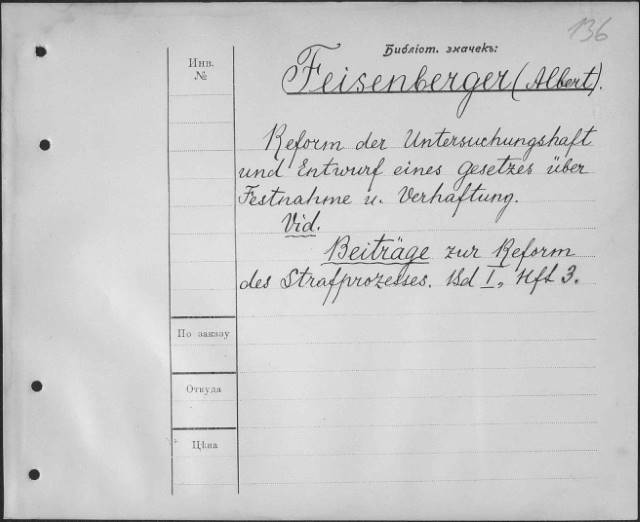 136
Библіот. значекъ:
Инв.
№
Feisenberger (Albert).
Reform der Untersuchungshaft
und Entwurf eines Gesetzes über
Festnahme u. Verhaftung.
Vid.
Beiträge zur Reform
des Strafprozesses. Bd I, Hft 3.
По заказу
Откуда
Цѣна